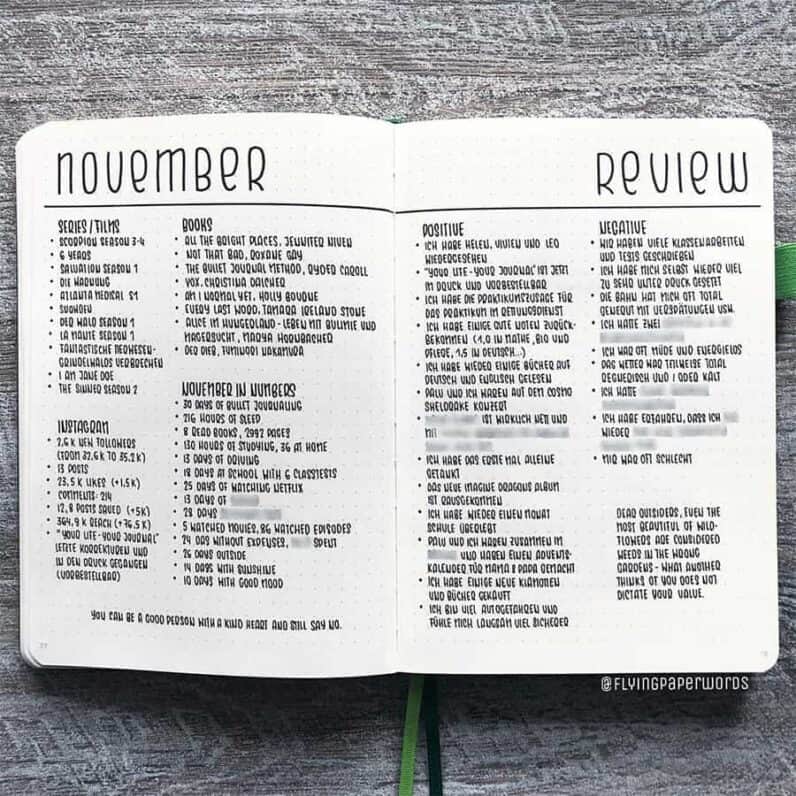 NOVEMBER
SERIES / FILMS
• SCORPION SEASON 3-4
• 6 YEARS
• SALVATION SEASON 1
• DIE WARNUNG
• ATLANTA MEDICAL S1
• SNOWDEN
• DER WALD SEASON 1
• LA MANTE SEASON 1
• FANTASTISCHE TIERWESEN-
GRINDELWALDS VERBRECHEN
• I AM JANE DOE
• THE SINNER SEASON 2
INSTAGRAM
• 2,6 K NEW FOLLOWERS
(FROM 32,6K TO 35,2K)
• 13 POSTS
• 23,5 K LIKES (+1,5K)
• COMMENTS: 214
• 12,8 POSTS SAVED (+5K)
• 364,9K REACH (+76,5K)
• "YOUR LIFE - YOUR JOURNAL"
LETZTE KORREKTUREN UND
IN DEN DRUCK GEGANGEN
(VORBESTELLBAR)
BOOKS
• ALL THE BRIGHT PLACES, JENNIFER NIVEN
• NOT THAT BAD, ROXANE GAY
• THE BULLET JOURNAL METHOD, RYDER CAROLL
• VOX, CHRISTINA DALCHER
• AM I NORMAL YET, HOLLY BOURNE
• EVERY LAST WORD, TAMARA IRELAND STONE
• ALICE IM HUNGERLAND - LEBEN MIT BULIMIE UND
MAGERSUCHT, MARYA HORNBACHER
• DER DIEB, FUMINORI NAKAMURA
NOVEMBER IN NUMBERS
• 30 DAYS OF BULLET JOURNALING
• 216 HOURS OF SLEEP
• 8 READ BOOKS, 2992 PAGES
• 130 HOURS OF STUDYING, 36 AT HOME
• 13 DAYS OF DRIVING
• 18 DAYS AT SCHOOL WITH 6 CLASSTESTS
• 25 DAYS OF WATCHING NETFLIX
• 13 DAYS OF
• 28 DAYS
• 5 WATCHED MOVIES, 86 WATCHED EPISODES
• 24 DAS WITHOUT EXPENSES, SPENT
• 26 DAYS OUTSIDE
• 14 DAYS WITH SUNSHINE
• 10 DAYS WITH GOOD MOOD
YOU CAN BE A GOOD PERSON WITH A KIND HEART AND STILL SAY NO.
REVIEW
POSITIVE
• ICH HABE HELEN, VIVIEN UND LEO
WIEDERGESEHEN
• "YOUR LIFE - YOUR JOURNAL" IST JETZT
IM DRUCK UND VORBESTELLBAR
• ICH HABE DIE PRAKTIKUMSZUSAGE FÜR
DAS PRAKTIKUM IM RETTUNGSDIENST
• ICH HABE EINIGE GUTE NOTEN ZURÜCK-
BEKOMMEN (1,0 IN MATHE, BIO UND
PFLEGE, 1,5 IN DEUTSCH...)
• ICH HABE WIEDER EINIGE BÜCHER AUF
DEUTSCH UND ENGLISCH GELESEN
• PALU UND ICH WAREN AUF DEM COSMO
SHELDRAKE KONZERT
• IST WIRKLICH NETT UND
MIT
• ICH HABE DAS ERSTE MAL ALLEINE
GETANKT
• DAS NEUE IMAGINE DRAGONS ALBUM
IST RAUSGEKOMMEN
• ICH HABE WIEDER EINEN MONAT
SCHULE ÜBERLEBT
• PALU UND ICH WAREN ZUSAMMEN IN
UND HABEN EINEN ADVENTS-
KALENDER FÜR MAMA & PAPA GEMACHT
• ICH HABE EINIGE NEUE KLAMOTTEN
UND BÜCHER GEKAUFT
• ICH BIN VIEL AUTOGEFAHREN UND
FÜHLE MICH LANGSAM VIEL SICHERER
NEGATIVE
• WIR HABEN VIELE KLASSENARBEITEN
UND TESTS GESCHRIEBEN
• ICH HABE MICH SELBST WIEDER VIEL
ZU SEHR UNTER DRUCK GESETZT
• DIE BAHN HAT MICH OFT TOTAL
GENERVT MIT VERSPÄTUNGEN USW.
• ICH HATTE ZWEI
• ICH WAR OFT MÜDE UND ENERGIELOS
• DAS WETTER WAR TEILWEISE TOTAL
REGNERISCH UND / ODER KALT
• ICH HATTE
• ICH HABE ERFAHREN, DASS ICH
WIEDER
• MIR WAR OFT SCHLECHT
DEAR OUTSIDERS, EVEN THE
MOST BEAUTIFUL OF WILD-
FLOWERS ARE CONSIDERED
WEEDS IN THE WRONG
GARDENS - WHAT ANOTHER
THINKS OF YOU DOES NOT
DICTATE YOUR VALUE.
@FLYINGPAPERWORDS